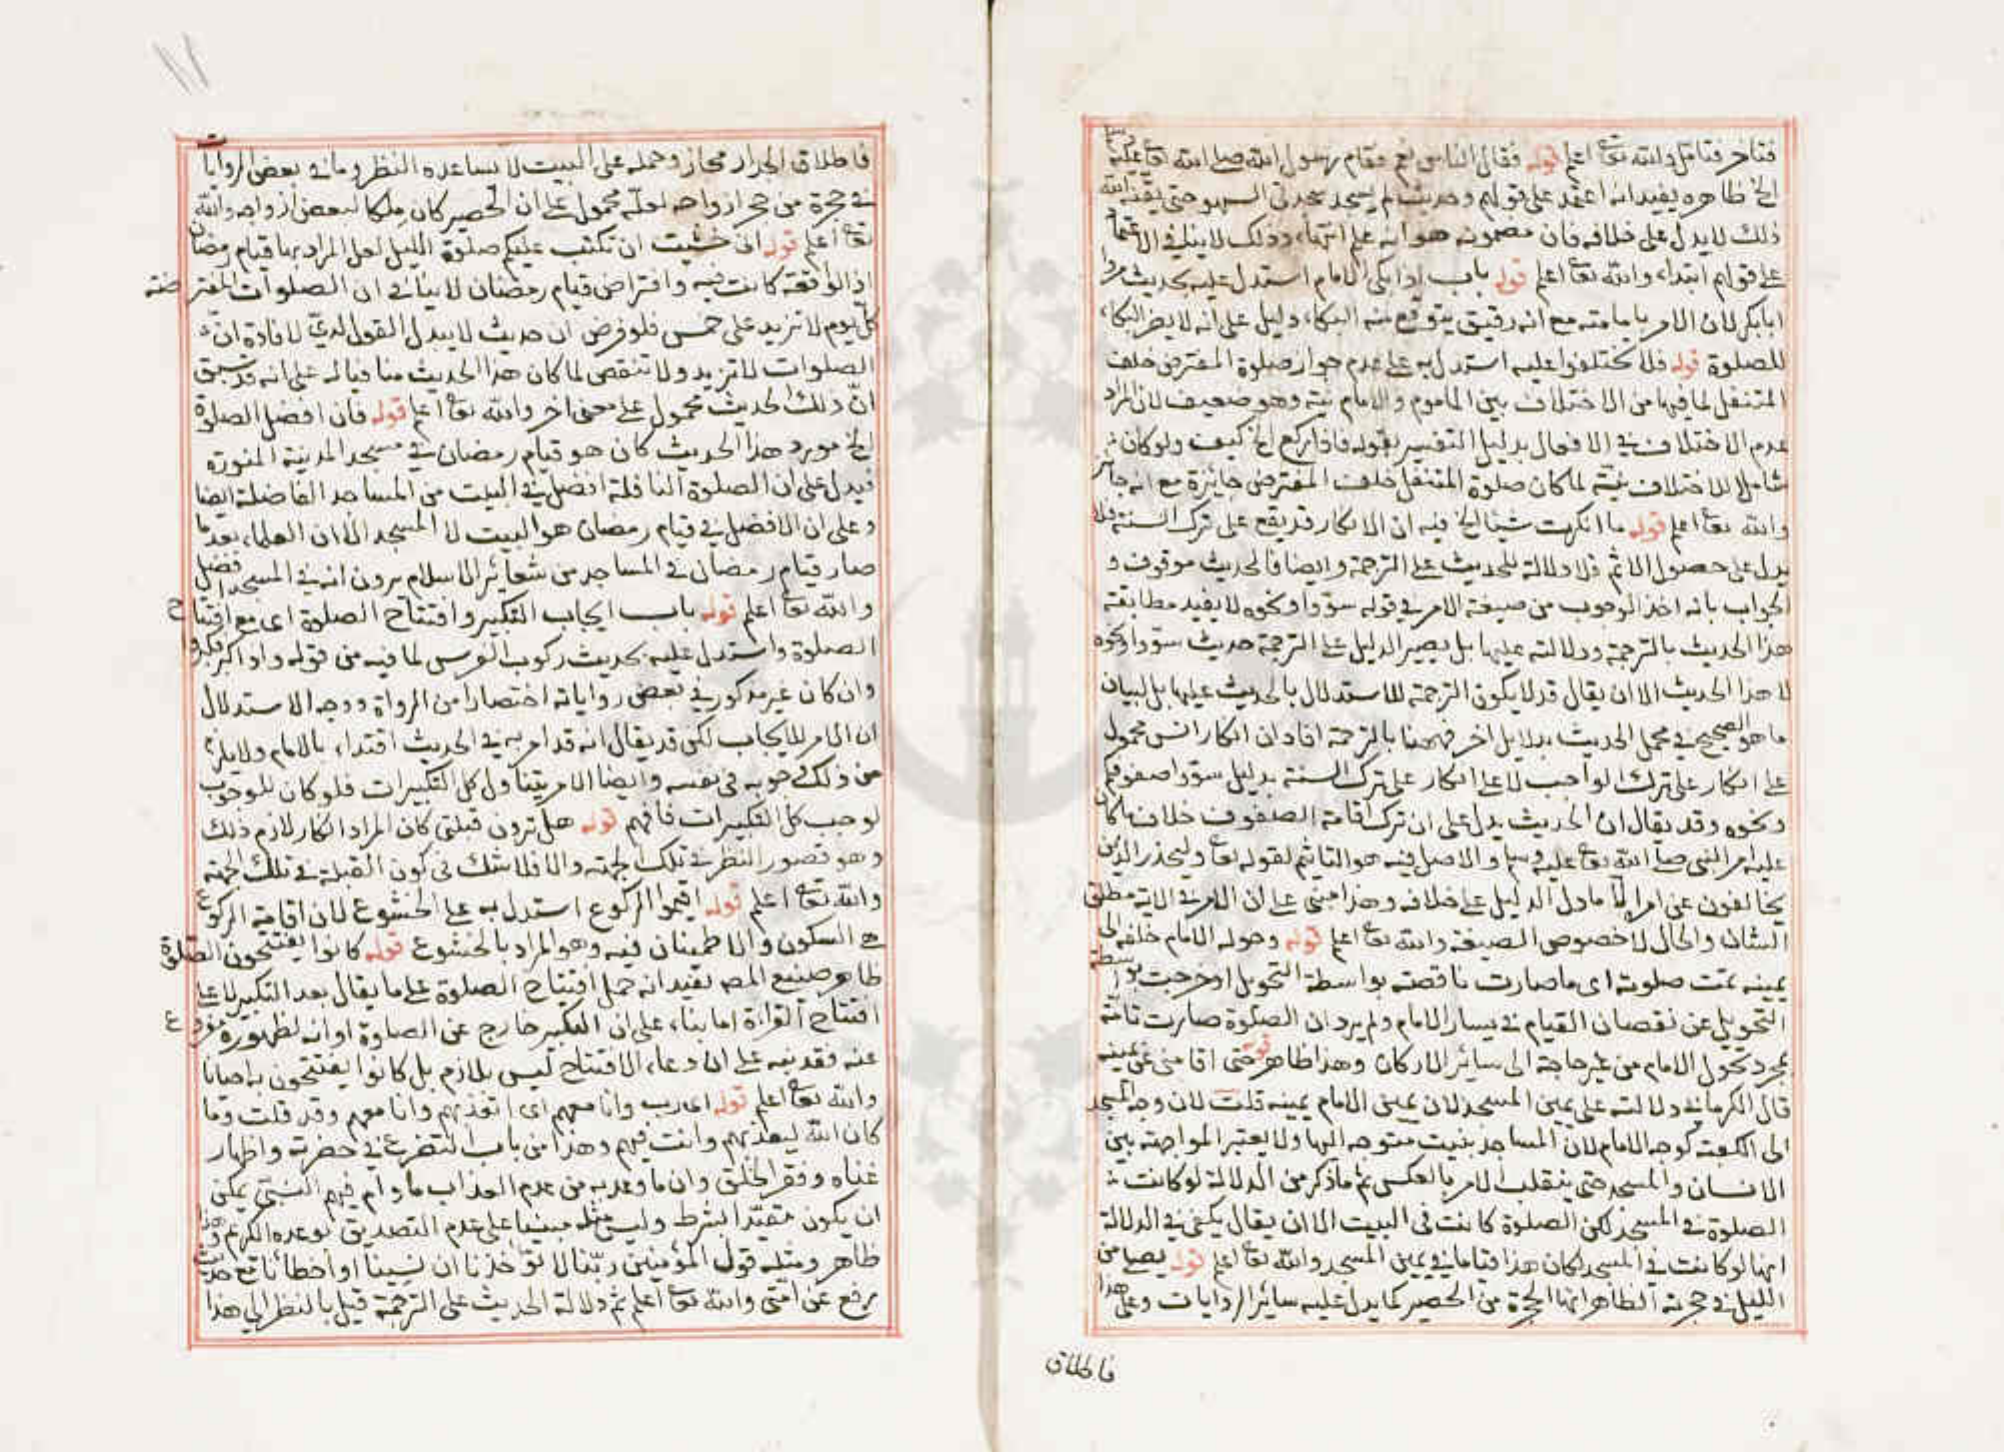 فتاخر فتامل والله تعا اعلم قوله فقال الناس نعم فقام رسول الله صلى الله تعا عليه وسلم
الخ ظاهره يفيد انه اعتمد على قولهم وحديث لم يسجد سجدتي السهو حتى يقنه الله
ذلك لا يدل على خلافه فان مضمونه هو انه علم انتهاء وذلك لا ينافي الاعتماد
على قولهم ابتداء والله تعا اعلم قوله باب اذا بكى الامام استدل عليه بحديث مروا
ابابكر لان الامر بامامته مع انه رقيق يتوقع منه البكاء دليل على انه لا يضر البكاء
للصلوة قوله فلا تختلفوا عليه استدل به على عدم جواز صلوة المفترض خلف
المتنفل لما فيها من الاختلاف بين الماموم والامام نية وهو ضعيف لان المراد
عدم الاختلاف في الافعال بدليل التفسير بقوله فاذا ركع الخ كيف ولو كان
شاملا للاختلاف نية لما كان صلوة المتنفل خلف المفترض جائزة مع انه جائز
والله تعا اعلم قوله ما انكرت شيئا الخ فيه ان الانكار قد يقع على ترك السنة فلا
يدل على حصول الاثم فلا دلالة للحديث على الترجمة وايضا فالحديث موقوف و
الجواب بانه اخذ الوجوب من صيغة الامر في قوله سووا ونحوه لا يفيد مطابقة
هذا الحديث بالترجمة ودلالته عليها بل يصير الدليل على الترجمة حديث سووا ونحوه
لا هذا الحديث الا ان يقال قد لا يكون الترجمة للاستدلال بالحديث عليها بل لبيان
ما هو الصحيح في محمل الحديث بدلايل اخر فههنا بالترجمة افاد ان انكار انس محمول
على انكار على ترك الواجب لا على انكار على ترك السنة بدليل سووا صفوفكم
ونحوه وقد يقال ان الحديث يدل على ان ترك اقامة الصفوف خلاف ما كان
عليه امر النبي صلى الله تعا عليه وسلم والاصل فيه هو التاثيم لقوله تعا وليحذر الذين
يخالفون عن امره الا ما دل الدليل على خلافه وهذا مبني على ان الامر في الاية مطلق
الشان والحال لا خصوص الصيغة والله تعا اعلم قوله وحوله الامام خلفه الى
يمينه تمت صلوته اى ما صارت ناقصة بواسطة التحويل او خرجت بواسطة
التحويل عن نقصان القيام في يسار الامام ولم يرد ان الصلوة صارت تامة
بمجرد تحول الامام من غير حاجة الى سائر الاركان وهذا ظاهر قوله حتى اقامني عن يمينه
قال الكرماني دلالته على يمين المسجد لان يمين الامام يمينه قلت لان وجه المسجد
الى الكعبة كوجه الامام لان المساجد بنيت متوجه اليها ولا يعتبر المواجهة بين
الانسان والمسجد حتى ينقلب الامر بالعكس ثم ما ذكر من الدلالة لو كانت
الصلوة في المسجد لكن الصلوة كانت في البيت الا ان يقال يكفي في الدلالة
انها لو كانت في المسجد لكان هذا قياما في يمين المسجد والله تعا اعلم قوله يصلي من
الليل في حجرته الظاهر انها الحجرة من الحصير كما يدل عليه سائر الروايات وعلى هذا
فاطلاق
فاطلاق الجدار مجاز وحمله على البيت لا يساعده النظر وما في بعض الروايات
في حجرة من حجر ازواجه لعله محمول على ان الحصير كان ملكا لبعض ازواجه والله
تعا اعلم قوله انى خشيت ان تكتب عليكم صلوة الليل لعل المراد بها قيام رمضان
اذ الواقعة كانت فيه وافتراض قيام رمضان لا ينافي ان الصلوات المفترضة
كل يوم لا تزيد على خمس فلو فرض ان حديث لا يبدل القول لدي لافادة ان
الصلوات لا تزيد ولا تنقص لما كان هذا الحديث منافيا له على انه قد سبق
ان ذلك الحديث محمول على معنى اخر والله تعا اعلم قوله فان افضل الصلوة
الخ مورد هذا الحديث كان هو قيام رمضان في مسجد المدينة المنورة
فيدل على ان الصلوة النافلة افضل في البيت من المساجد الفاضلة ايضا
وعلى ان الافضل في قيام رمضان هو البيت لا المسجد الا ان العلماء بعد ما
صار قيام رمضان في المساجد من شعائر الاسلام يرون انه في المسجد افضل
والله تعا اعلم قوله باب ايجاب التكبير وافتتاح الصلوة اى مع افتتاح
الصلوة واستدل عليه بحديث ركوب الفرس لما فيه من قوله واذا كبر فكبروا
وان كان غير مذكور في بعض رواياته اختصارا من الرواة ووجه الاستدلال
ان الامر للايجاب لكن قد يقال انه قد امر به في الحديث اقتداء بالامام ولا يلزم
من ذلك وجوبه في نفسه وايضا الامر يتناول كل التكبيرات فلو كان للوجوب
لوجب كل التكبيرات فافهم قوله هل ترون قبلتي كان المراد انكار لازم ذلك
وهو قصور النظر في تلك الجهة والا فلا شك في كون القبلة في تلك الجهة
والله تعا اعلم قوله اقيموا الركوع استدل به على الخشوع لان اقامة الركوع
هي السكون والاطمينان فيه وهو المراد بالخشوع قوله كانوا يفتتحون الصلوة
ظاهر صنيع المص يفيد انه حمل افتتاح الصلوة على ما يقال بعد التكبير لا على
افتتاح القراءة اما بناء على ان التكبير خارج عن الصلوة او انه لظهوره مفروغ
عنه فقد نبه على ان دعاء الافتتاح ليس بلازم بل كانوا يفتتحون به احيانا
والله تعا اعلم قوله اى رب وانا معهم اى اتعذبهم وانا معهم وقد قلت وما
كان الله ليعذبهم وانت فيهم وهذا من باب التضرع في حضرته واظهار
غناه وفقر الخلق وان ما وعد به من عدم العذاب ما دام فيهم النبي يمكن
ان يكون مقيدا بشرط وليس مثله مبنيا على عدم التصديق لوعده الكريم وهذا
ظاهر ومثله قول المؤمنين ربنا لا تؤاخذنا ان نسينا او اخطأنا مع حديث
رفع عن امتي والله تعا اعلم ثم دلالة الحديث على الترجمة قيل بالنظر الى هذا